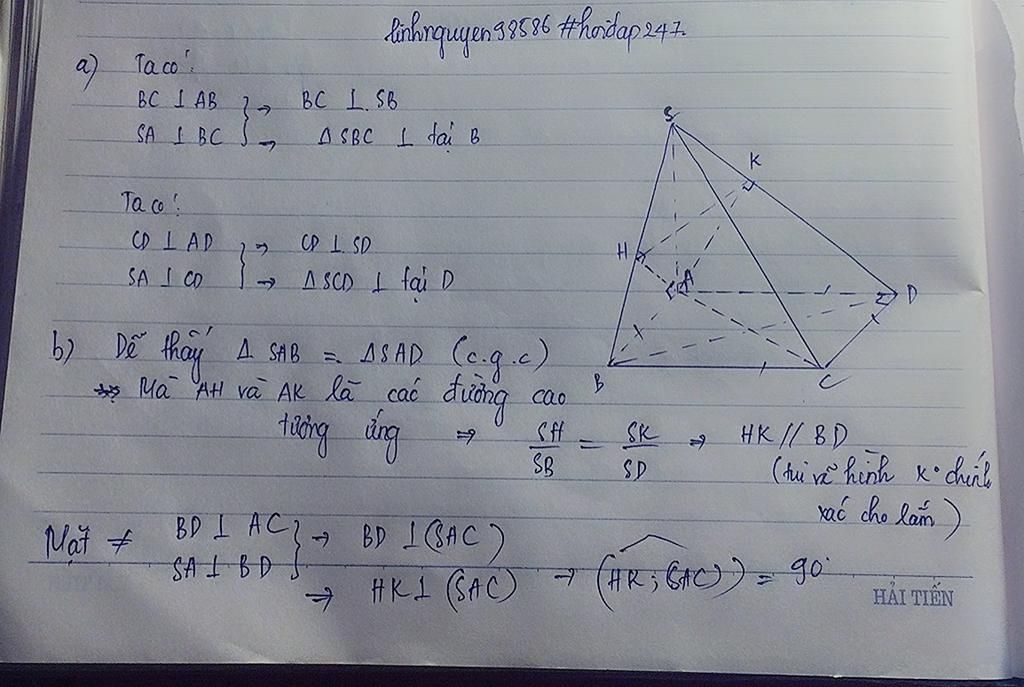 linhnguyen98586 #hoidap247.
a) Ta có:
BC ⊥ AB } → BC ⊥ SB
SA ⊥ BC } → Δ SBC ⊥ tại B
Ta có:
CD ⊥ AD } → CD ⊥ SD
SA ⊥ CD } → Δ SCD ⊥ tại D
b) Dễ thấy Δ SAB = Δ SAD (c.g.c)
Mà AH và AK là các đường cao
tương ứng ⇒ SH/SB = SK/SD ⇒ HK // BD
(tui vẽ hình k° chính
xác cho lắm)
Mặt ≠ BD ⊥ AC } → BD ⊥ (SAC)
SA ⊥ BD } ⇒ HK ⊥ (SAC) → (HK; (SAC)) = 90°
S
K
H
A
D
B
C
HẢI TIẾN